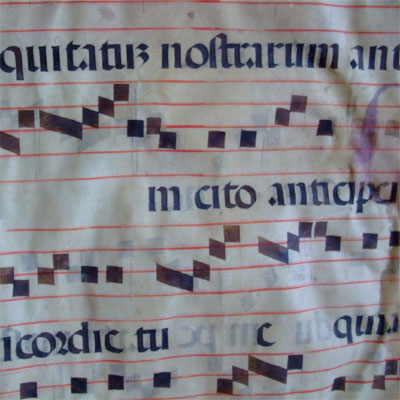 quitatuz nostrarum ant
m cito anticipe
icordie tu e quia